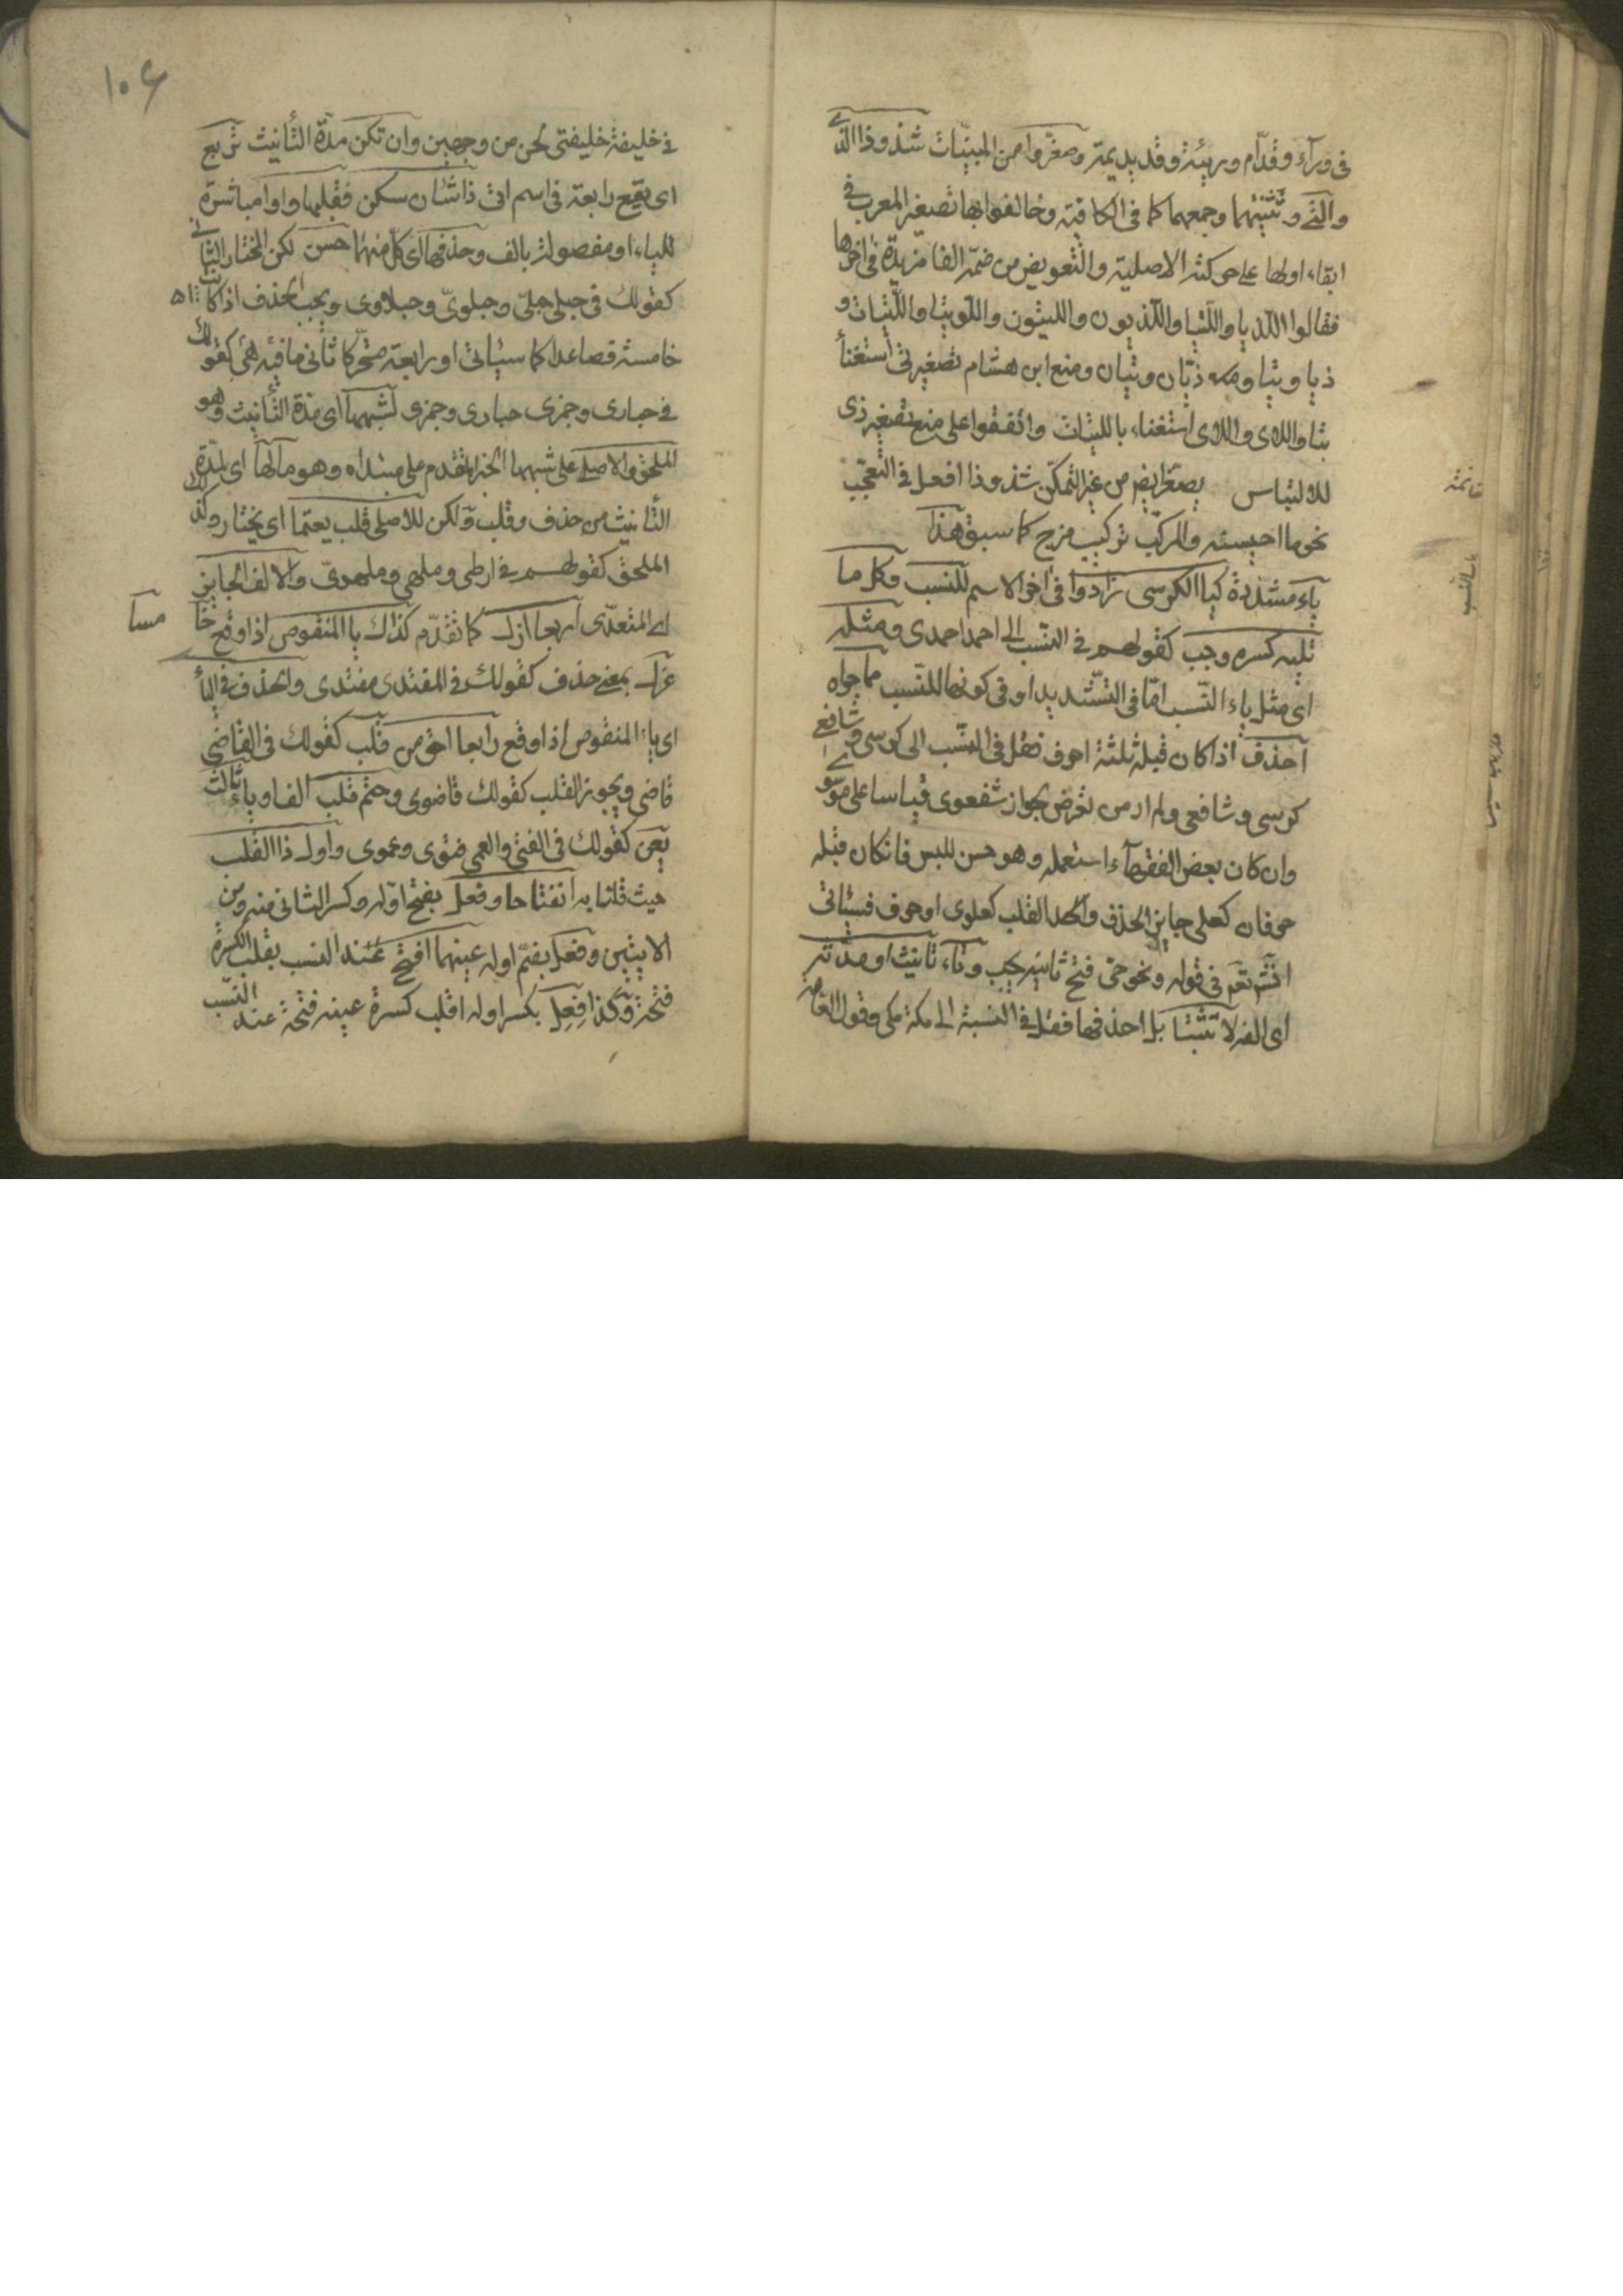 فى ورآء وقدّام وريئة وقديديمة وصغّروا من المبنيّات شذوذا الذى
والتى وتثنيتهما وجمعهما كما فى الكافية وخالفوا بها تصغير المعرب فى
ابقاء اولها على حركته الاصلية والتعويض من ضمّه الفا مزيدة فى اخرها
فقالوا اللّذيا واللّتيا واللّذيون واللّيتون واللّويتا واللّتيات و
ذيا وتيا و ذيّان وتيان ومنع ابن هشام تصغير تى استغنأ
بتا واللاى واللائى استغناء باللتيات واتفقوا على منع تصغير ذى
للالتباس يصغّر ايض من غير المتمكّن شذوذا افعل فى التعجّب
نحو ما احيسنه والمركّب تركيب مزج كما سبق هذا
خاتمة
باب النسب
يآء مشدّدة كيا الكرسى زادوا فى اخر الاسم للنسب وكل ما
تليه كسره وجب كقولهم فى النّسب الى احمد احمدى ومثله
اى مثل ياء النّسب امّا فى التّشديد او فى كونها للنّسب مما حواه
احذف اذا كان قبله ثلثة احرف فقل فى النسّب الى كرسى وشافعى
كرسى وشافعى ولم ار من تعرض لجواز شفعوى قياسا على موسوى
وان كان بعض الفقهآء استعمله وهو حسن للبس فان كان قبله
حرفان كعلى جايز الحذف والقلب كعلوى او حرف فسياتى
انّه تعم فى قوله ونحو حى فتح ثانيه يجب وتآء تانيث او مدّته
اى الفه لا تثبتا بل احذفها فقل فى النسبة الى مكة مكى وقول العامه
١٠٦
فى خليفة خليفتى لحن من وجهين وان تكن مدّة التأنيث تربع
اى تقع رابعة فى اسم اتى ذا ثان سكن فقلبها واوا مباشرة
للياء او مفصولة بالف وحذفها اى كل منهما حسن لكن المختار الثانى
كقولك فى حبلى حبلى وحبلوىّ وحبلاوى ويجب الحذف اذا كانت
خامسة فصاعدا كما سياتى او رابعة متحرّكا ثانى ما فيه هى كقولك
فى حبارى وجمزى حبارى وجمزى لشبهها اى مدّة التأنيث وهو
الملحق والاصلى على شبهها الخبر المقدم على مبتداه وهو ما لها اى لمدّة
التأنيث من حذف وقلب ولكن للاصلى قلب يعتما اى يختار وكذا
الملحق كقولهم فى ارطى وملهى وملهوىّ والالف الجايز
اى المتعدّى اربعا ازل كما تقدّم كذاك يا المنقوص اذا وقع خا
مسا
عزل بمعنى حذف كقولك فى المقتدى مقتدى والحذف فى اليأ
اى ياء المنقوص اذا وقع رابعا احق من قلب كقولك فى القاضى
قاضى ويجوز القلب كقولك قاضوى وحتم قلب الف او ياء ثالث
يعن كقولك فى الفتى والعمى فتوى وعموى واول ذا القلب
حيث قلنا به انفتاحا وفعل بفتح اوله وكسر الثانى منه ومن
الاتيين وفعل بضمّ اوله عينهما افتح عند النسب بقلب الكسرة
فتحة وكذا فعل بكسر اوله اقلب كسرة عينه فتحة عند النّسب